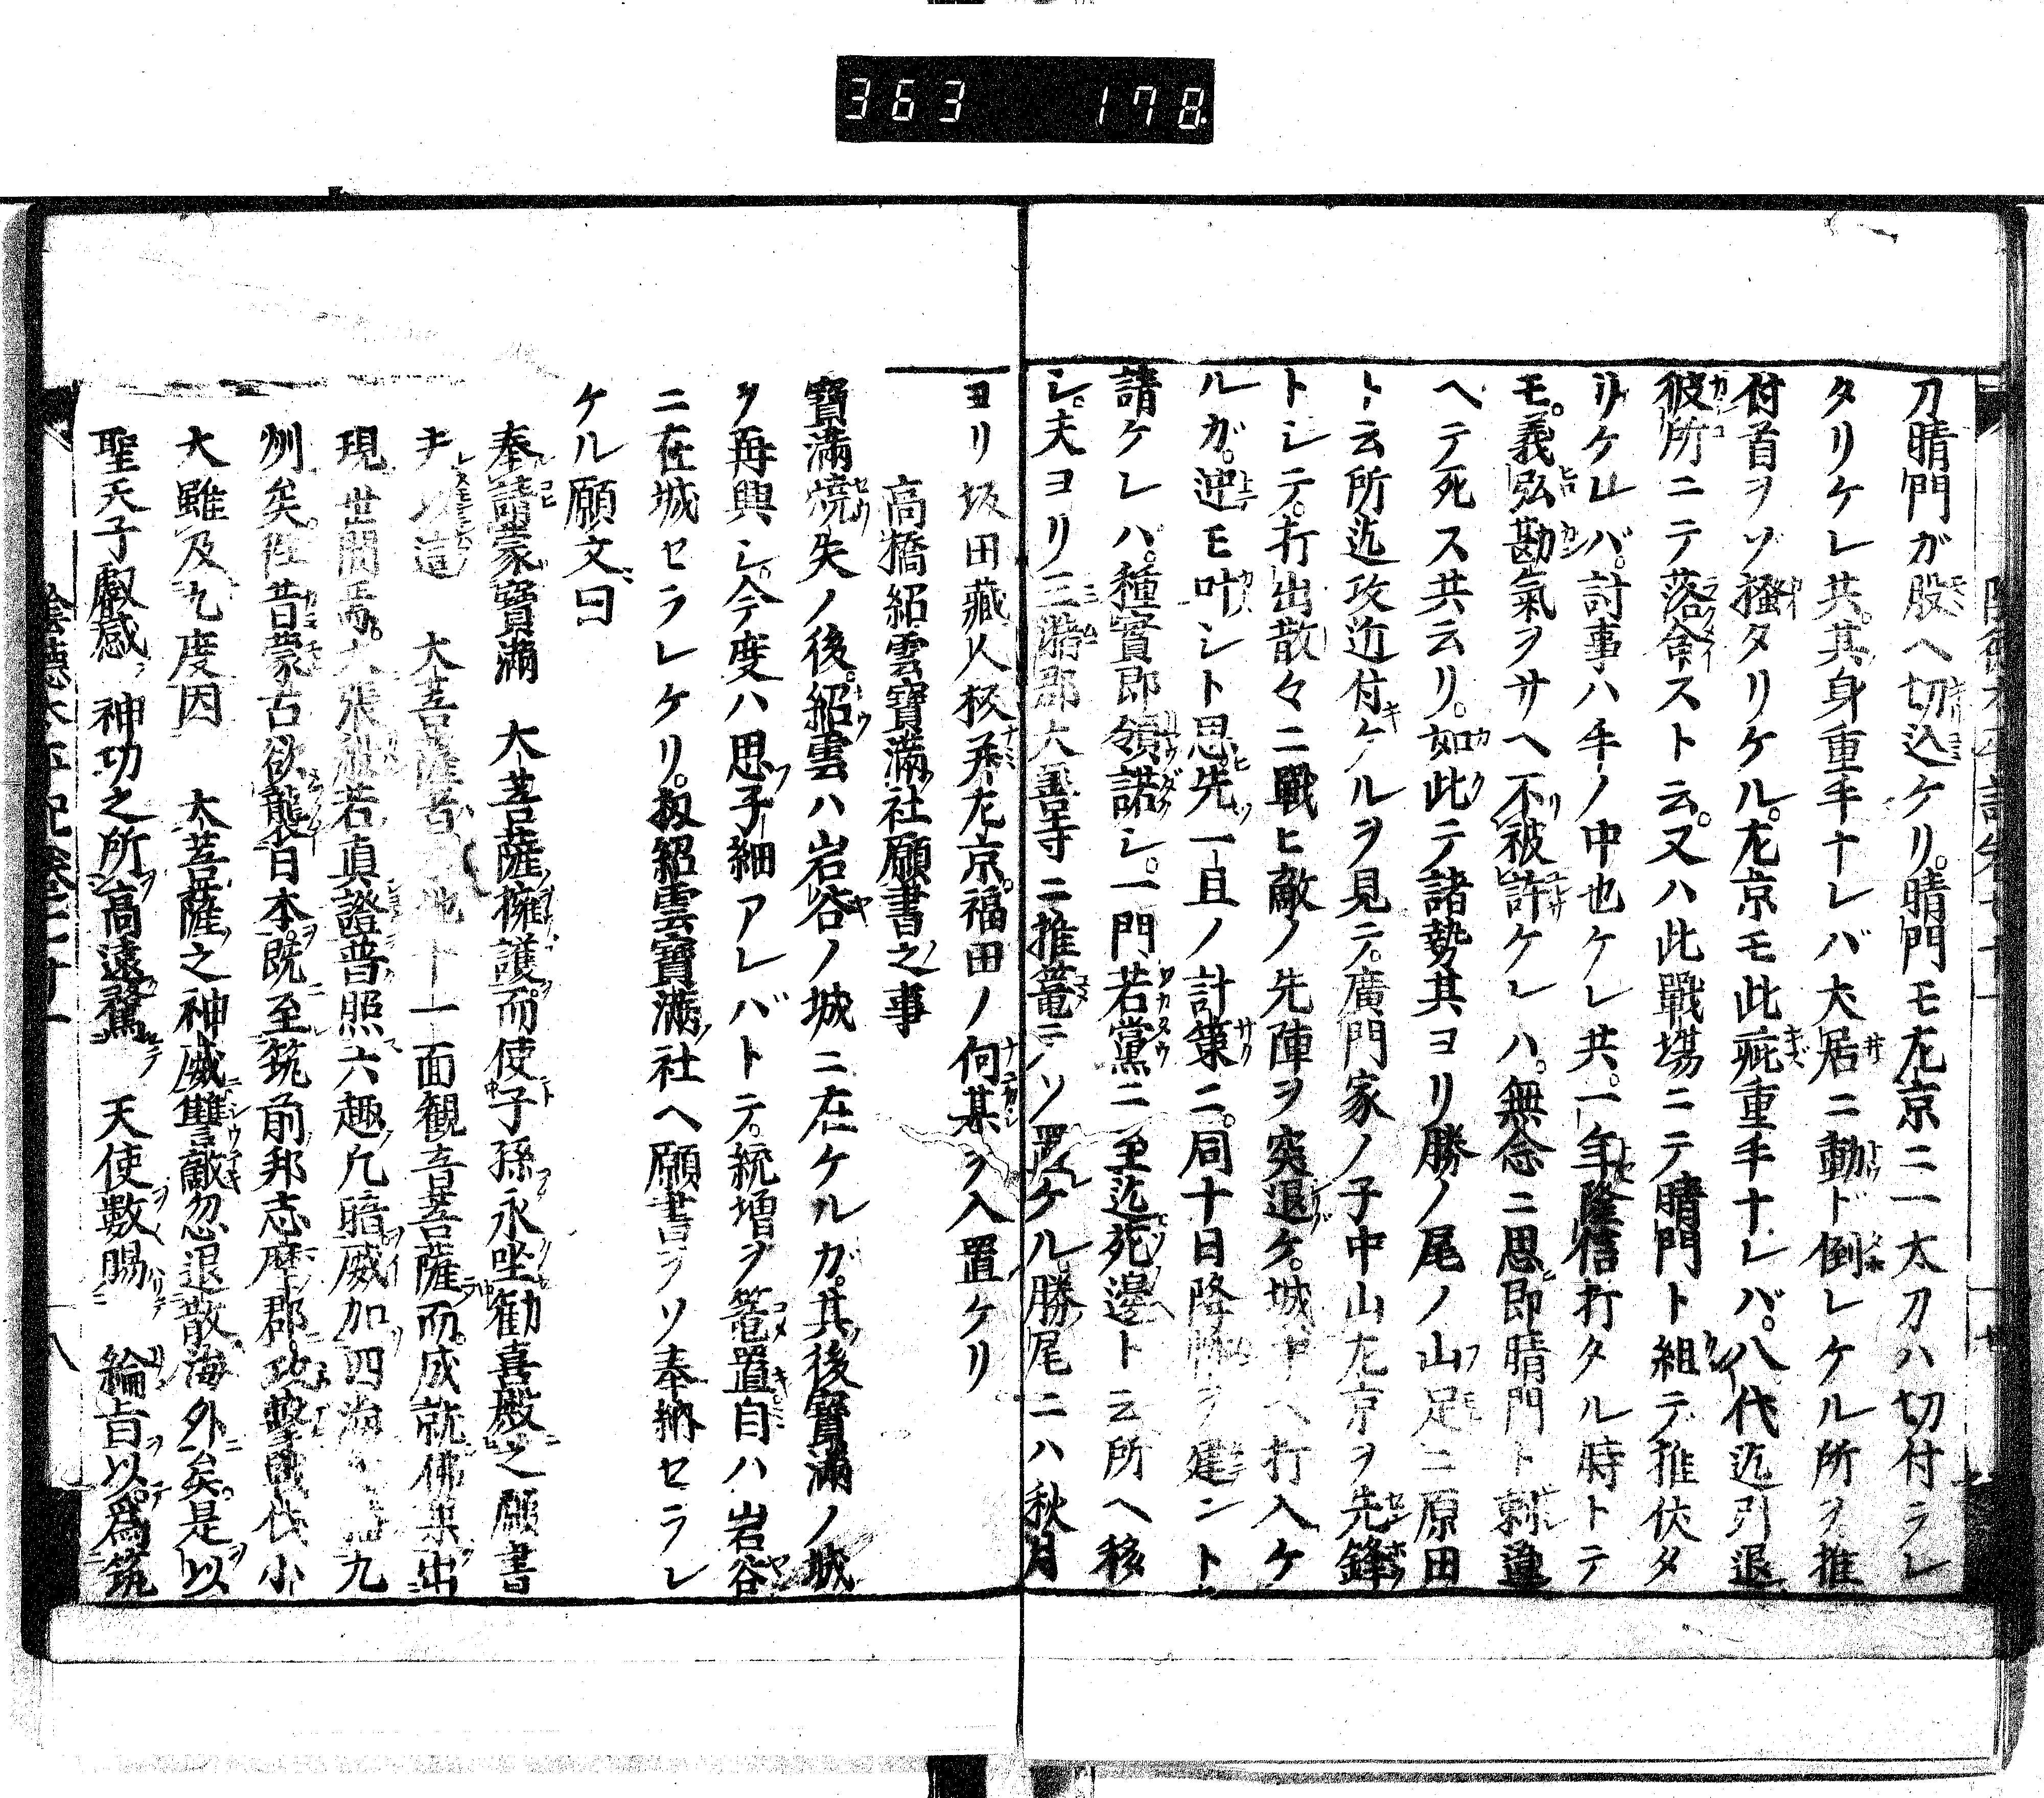 363 178
刀晴門ガ股ヘ切込ケリ。晴門モ左京ニ一太刀ハ切付ラレ
タリケレ共。其身重手ナレバ大居ニ動ド倒レケル所ヲ推
付首ヲソ搔タリケル。左京モ此疵重手ナレバ。八代迄引退
彼所ニテ落命スト云。又ハ此戰場ニテ晴門ト組テ推伏タ
リケレバ。討事ハ手ノ中也ケレ共。一年隆信打タル時トテ
モ。義弘勘氣ヲサヘ不被許ケレハ。無念ニ思即晴門ト刺違
ヘテ死ス共云リ。如此テ諸勢其ヨリ勝ノ尾ノ山足ニ原田
ト云所迄攻近付ケルヲ見テ。廣門家ノ子中山左京ヲ先鋒
トシテ。打出散々ニ戰ヒ敵ノ先陣ヲ突退ケ。城中ヘ打入ケ
ルガ。迚モ叶シト思先一旦ノ計策ニ。同十日降幡ヲ建ント
請ケレハ。種實即領諾シ。一門若黨ニ至迄死邊ト云所ヘ移
シ。夫ヨリ三潴郡大善寺ニ推篭ニソ置ケル。勝尾ニハ秋月
ヨリ坂田藏人板並左京。福田ノ何某ヲ入置ケリ
高橋紹雲寶滿社願書之事
寶滿燒失ノ後。紹雲ハ岩谷ノ城ニ在ケルガ。其後寶滿ノ城
ヲ再興シ。今度ハ思子細アレバトテ。統増ヲ篭置自ハ岩谷
ニ在城セラレケリ。扨紹雲寶滿社ヘ願書ヲソ奉納セラレ
ケル願文ニ曰
奉請蒙寶滿 大菩薩擁護而使子孫永坐勸喜殿之願書
大菩薩者 一面觀音菩薩而。成就佛菓出
現世間焉。大張 若真證普照六趣凢暗威加四海 九
州矣。往昔蒙古欲襲日本。既至筑前邦志摩郡。攻擊戰伐小
大雖及九度因 大菩薩之神威讐敵忽退散海外矣。是以
聖天子叡感 神功之所高遠駕 天使數賜 綸旨以。爲筑
八